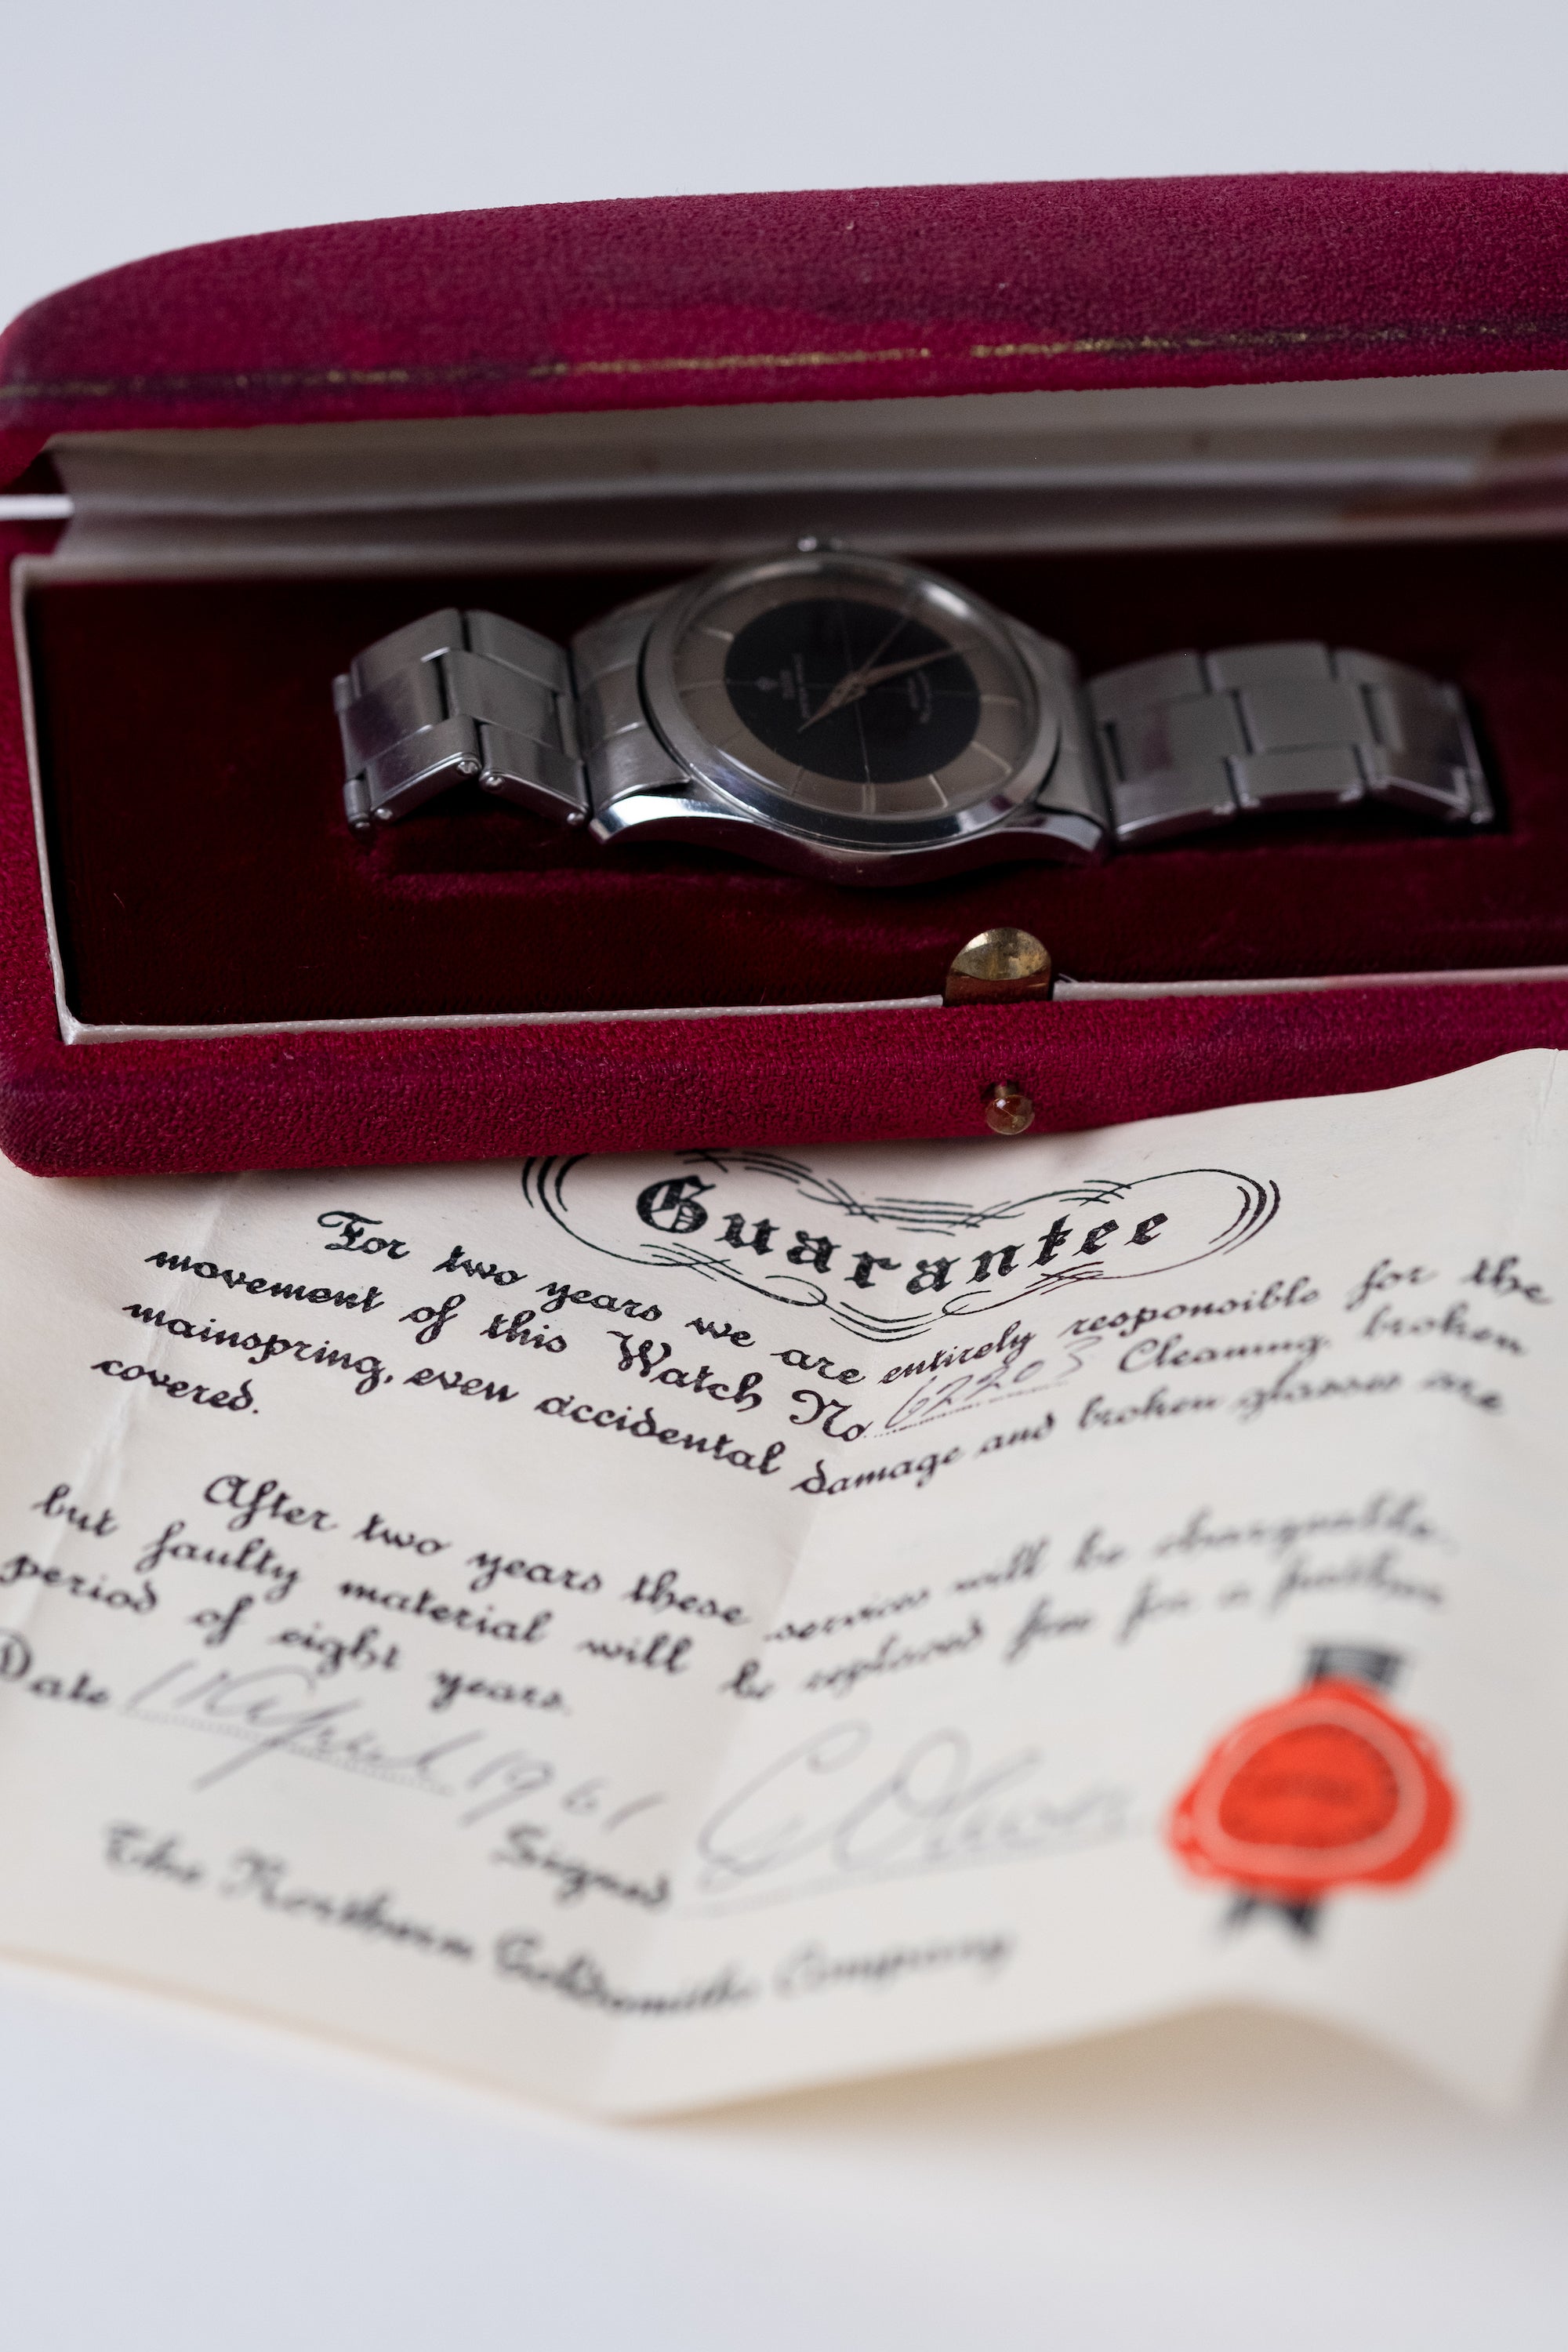 Guarantee
For two years we are entirely responsible for the
movement of this Watch No 62203 Cleaning, broken
mainspring, even accidental damage and broken glasses are
covered.
After two years these services will be chargeable,
but faulty material will be replaced free for a further
period of eight years.
Date 11 April 1961
Signed
The Northern Goldsmiths Company